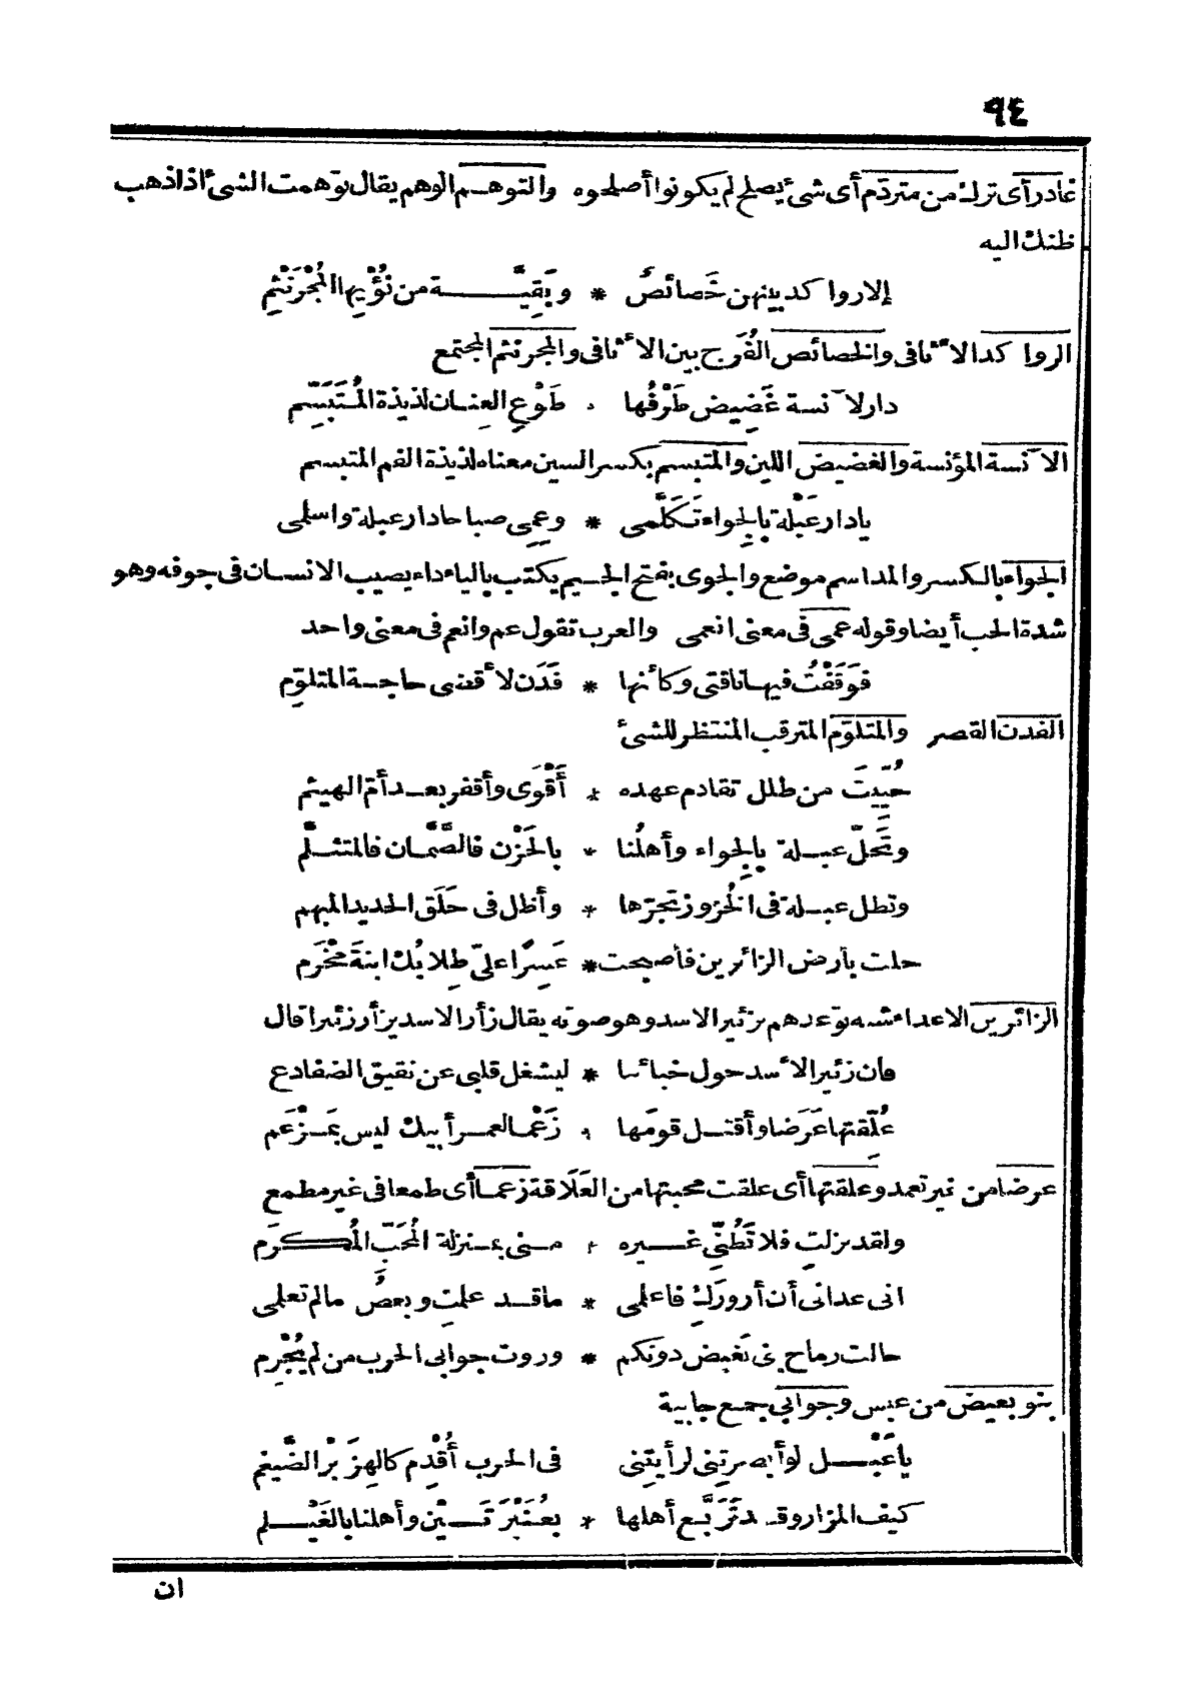 ٩٤
غادر أى ترك من متردّم أى شئ يصلح لم يكونوا أصلحوه والتوهم الوهم يقال توّهمت الشئ اذا ذهب
ظنك اليه
إلا رواكد بينهن خَصائصٌ * وبَقِيَّة من نُؤْيها المُجْرَنْثِمِ
الرواكد الأثافى والخصائص الفُرَج بين الأثافى والمجرنثم المجتمع
دار لآنسة غَضِيض طَرْفُها . طَوْعِ العِنان لذيذة المُتَبَسِّم
الآنسة المؤنسة والغضيض اللين والمتبسم بكسر السين معناه لذيذة الفم المتبسم
يا دار عَبْلة بالجِواء تَكَلَّمى * وعِمِى صباحا دار عبلة واسلمى
الجواء بالكسر والمد اسم موضع والجوى بفتح الجيم يكتب بالياء داء يصيب الانسان فى جوفه وهو
شدة الحب أيضا وقوله عمى فى معنى انعمى والعرب تقول عم وانعم فى معنى واحد
فوَقَفْتُ فيها ناقتى وكأنها * فَدَن لأقضى حاجة المتلوِّم
الفدن القصر والمتلوّم المترقب المنتظر للشئ
حُيِّيتَ من طلل تقادم عهده * أَقْوَى وأقفر بعد أمّ الهيثم
وتَحَلّ عبلة بالجِواء وأهلُنا * بالحَزْن فالصَّمَّان فالمتثلَّم
وتظل عبلة فى الخُزوز تجرّها * وأظل فى حَلَق الحديد المبهم
حلت بأرض الزائرين فأصبحت * عَسِرًا علىّ طِلابُك ابنةَ مَخْرَم
الزائرين الاعداء شبه توّعدهم بزئير الاسد وهو صوته يقال زأر الاسد يزأر زئيرا قال
فان زئير الأسد حول خبائنا * ليشغل قلبى عن نقيق الضفادع
عُلِّقتها عَرَضا وأقتل قومَها * زَعْما لعمر أبيك ليس بمَزْعَم
عرضا من غير تعمد وعلقتها أى علقت محبتها من العَلَاقة زعما أى طمعا فى غير مطمع
ولقد نزلتِ فلا تَظُنِّي غيره * منى بمنزلة المُحَبّ المُكرَم
انى عدانى أن أزورَكِ فاعلمى * ما قد علمتِ وبعضُ مالم تعلمى
حالت رماح بنى بَغيض دونكم * وزوت جوابى الحرب من لم يُجْرِم
بنو بغيض من عبس وجوابي جمع جابية
يا عَبْل لو أبصرتِنى لرأيتِنى فى الحرب أُقْدِم كالهِزَبْر الضَّيغم
كيف المزار وقد تَرَبَّع أهلها * بعُنَيْزَتَيْن وأهلنا بالغَيْلم
ان